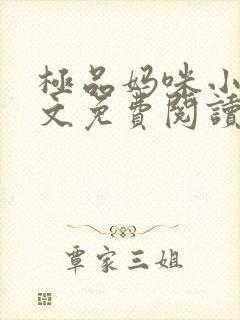 極品妈咪小
文免費閱讀
覃家三姐